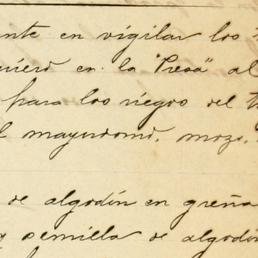 ante en vigilar los
en la "Presa" al
para los riegos del
mayordomo, mozo,
de algodón en greña
semilla de algodón